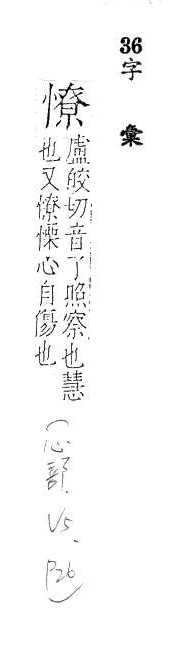 36字 彙
憭
盧皎切音了照察也慧
也又憭慄心自傷也
(心部、V5、P26)